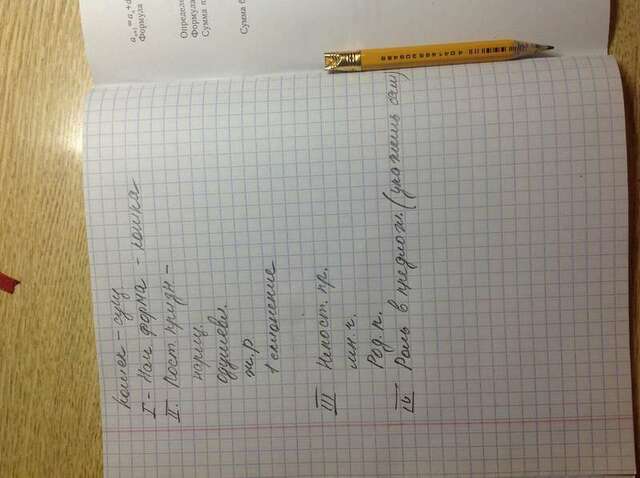 aₙ₊₁=aₙ+d
Формула
Определ
Формула
Сумма п
Сумма б
4041485306489
Кошек - сущ
I - Нач. форма - кошка
II. Пост. призн -
нариц.
одушевл.
ж.р
1 склонение
III Непост. пр.
мн.ч.
Род.п.
IV Роль в предлож. (укажешь сам)